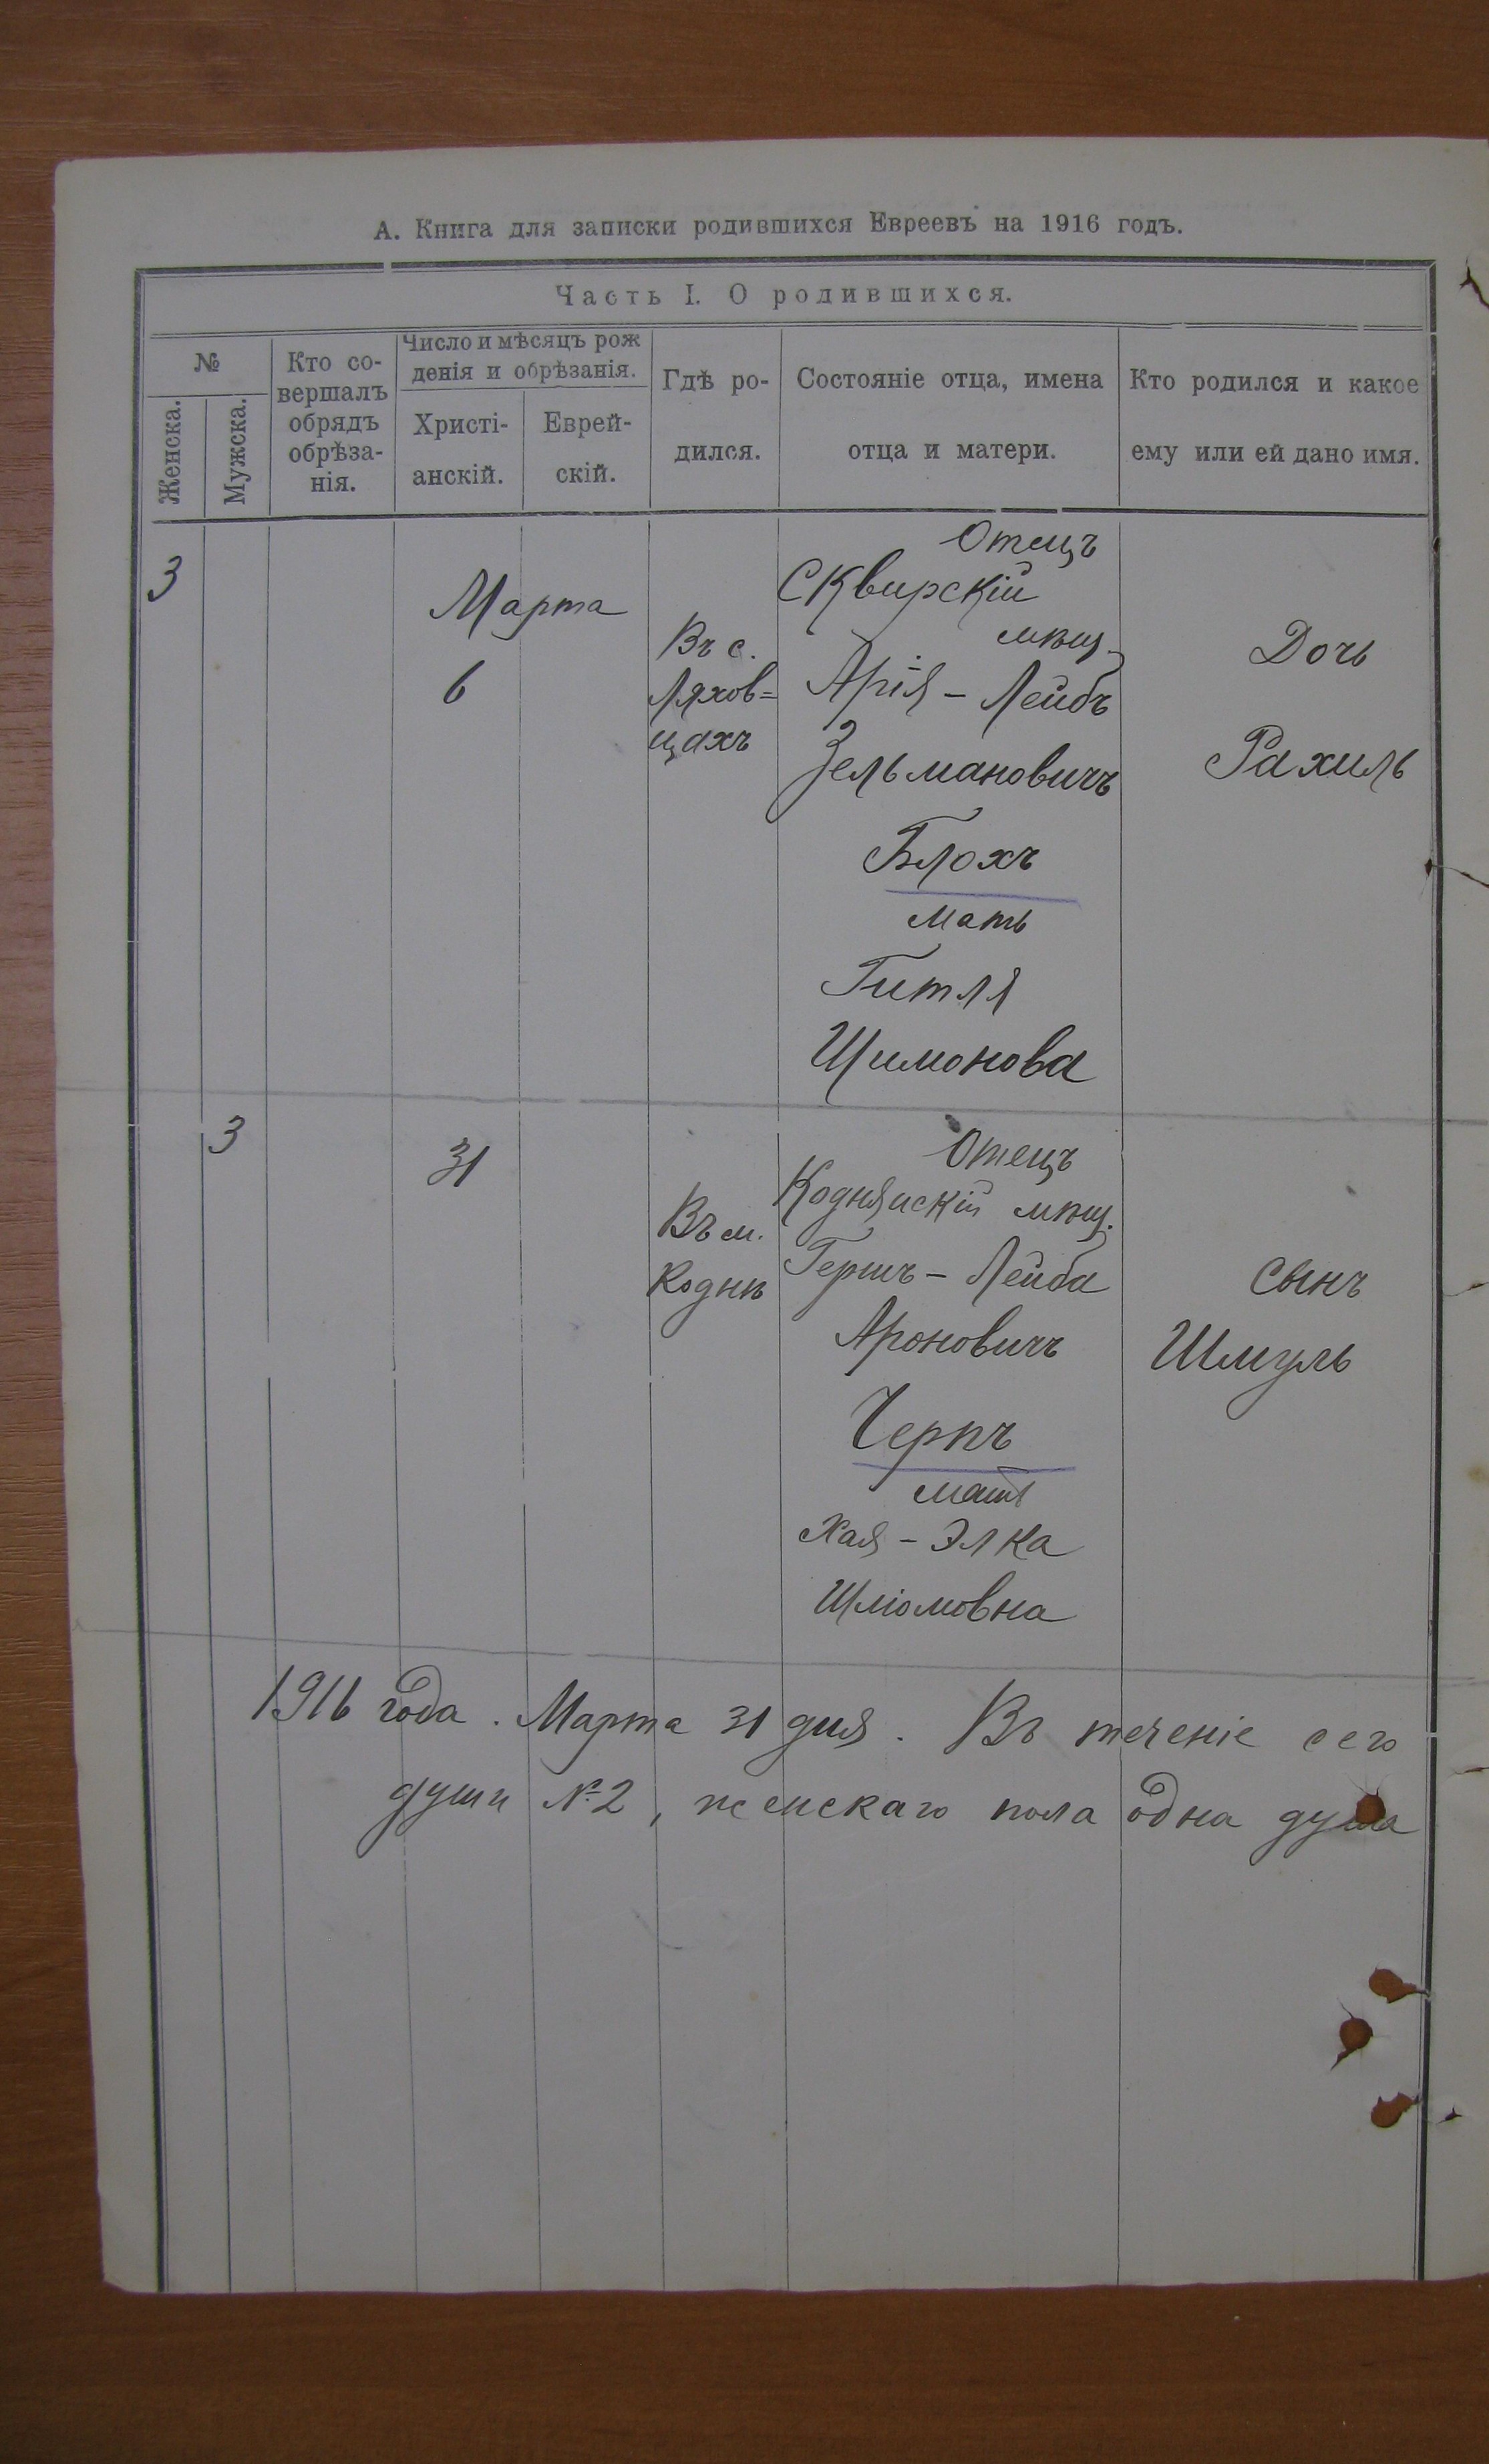 А. Книга для записки родившихся Евреевъ на 1916 годъ.
Часть I. О родившихся.
№
Женска.
Мужска.
Кто со-
вершалъ
обрядъ
обрѣза-
нія.
Число и мѣсяцъ рож
денія и обрѣзанія.
Христі-
анскій.
Еврей-
скій.
Гдѣ ро-
дился.
Состояніе отца, имена
отца и матери.
Кто родился и какое
ему или ей дано имя.
3
Марта
6
Въ с.
Ляхов=
цахъ
Отецъ
Сквирскій
мѣщ.
Арія - Лейбъ
Зельмановичъ
Блохъ
мать
Гитля
Шимонова
Дочь
Рахиль
3
31
Въ м.
Коднѣ
Отецъ
Коднянскій мѣщ.
Гершъ - Лейба
Ароновичъ
Мать
Хая - Элка
Шліомовна
Сынъ
Шмуль
1916 года. Марта 31 дня. Въ теченіе сего
души № 2, женскаго пола одна душа